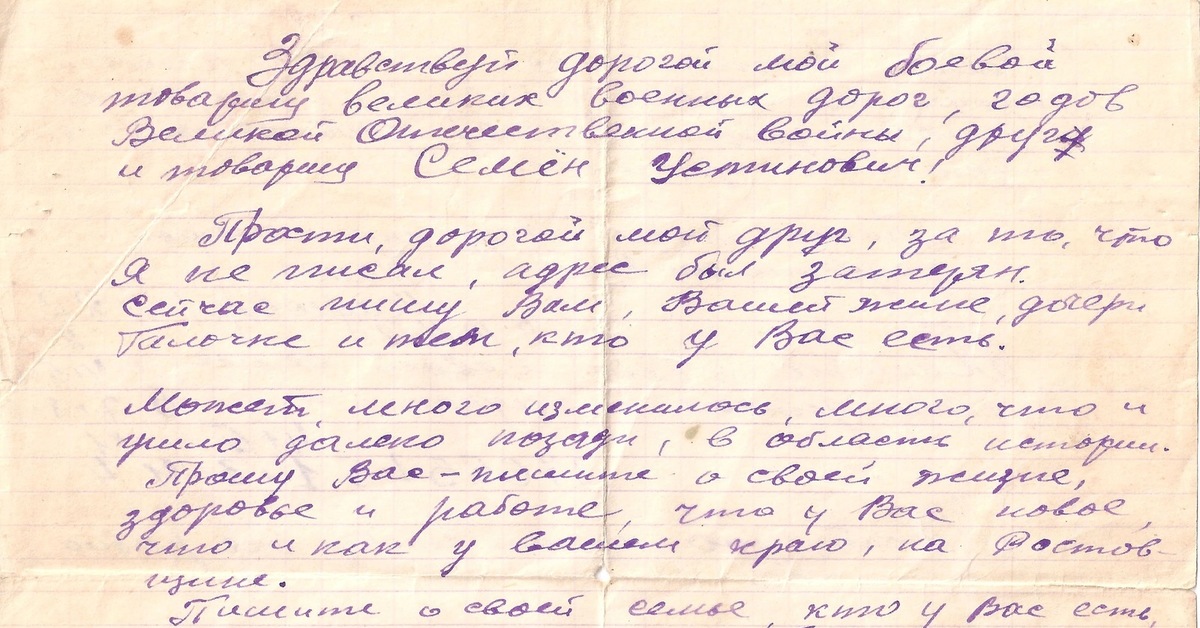 Здравствуй дорогой мой боевой
товарищ великих военных дорог, годов
Великой Отечественной войны, друг
и товарищ Семён Устинович!
Прости, дорогой мой друг, за то, что
я не писал, адрес был затерян.
сейчас пишу Вам, Вашей жине, дочери
Галочке и тем, кто у Вас есть.
Может много изменилось, много, что и
ушло далеко позади, в область истории.
Прошу Вас - пишите о своей жизне,
здоровье и работе, что у Вас новое,
что и как у вашем краю, на Ростов-
щине.
Пишите о своей семье, кто у Вас есть,